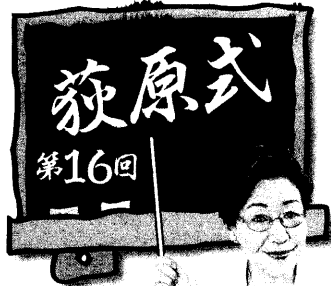 荻原式
第16回